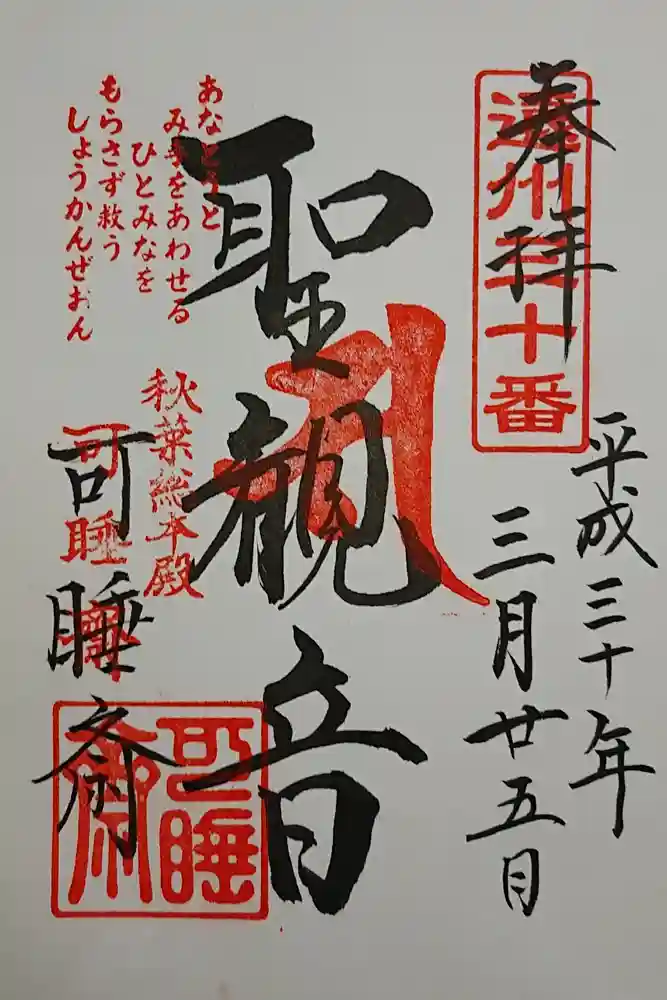 奉拝
遠州三十番
平成三十年
三月廿五日
聖観音
あなとうと
み手をあわせる
ひとみなを
もらさず救う
しょうかんぜおん
秋葉総本殿
可睡斎
可睡齋
可睡齋